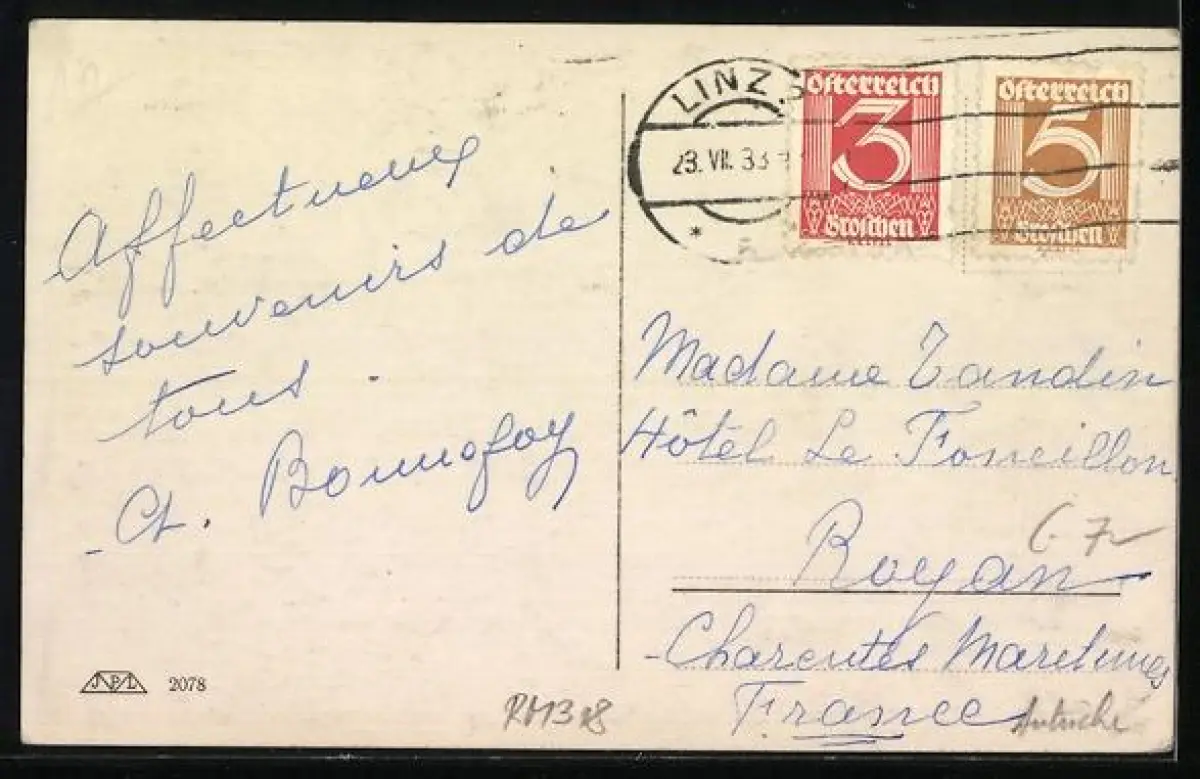 Affectueux
souvenirs de
tous.
Ch. Bonnefoy
LINZ
23. VII. 33
Österreich
3
Groschen
Österreich
5
Groschen
Madame Tandin
Hôtel Le Foncillon
Royan
Charentes Maritimes
France
JPL 2078
RM3
Autriche